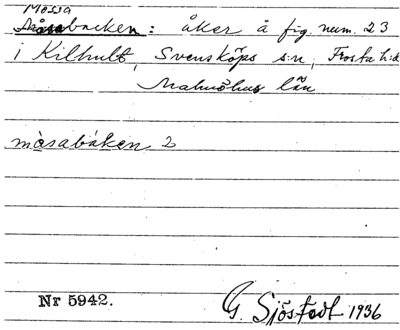 Mossa
Måsabacken: åker å fig. num. 23
i Kilhult, Svensköps s:n, Frosta h:d
Malmöhus län
måsabáken 2
Nr 5942.
G. Sjöstedt 1936